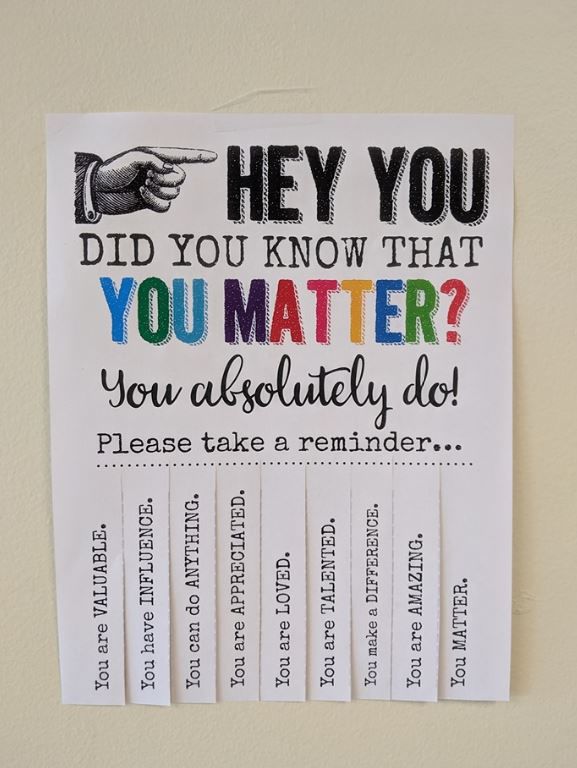 HEY YOU
DID YOU KNOW THAT
YOU MATTER?
You absolutely do!
Please take a reminder...
You are VALUABLE.
You have INFLUENCE.
You can do ANYTHING.
You are APPRECIATED.
You are LOVED.
You are TALENTED.
You make a DIFFERENCE.
You are AMAZING.
You MATTER.